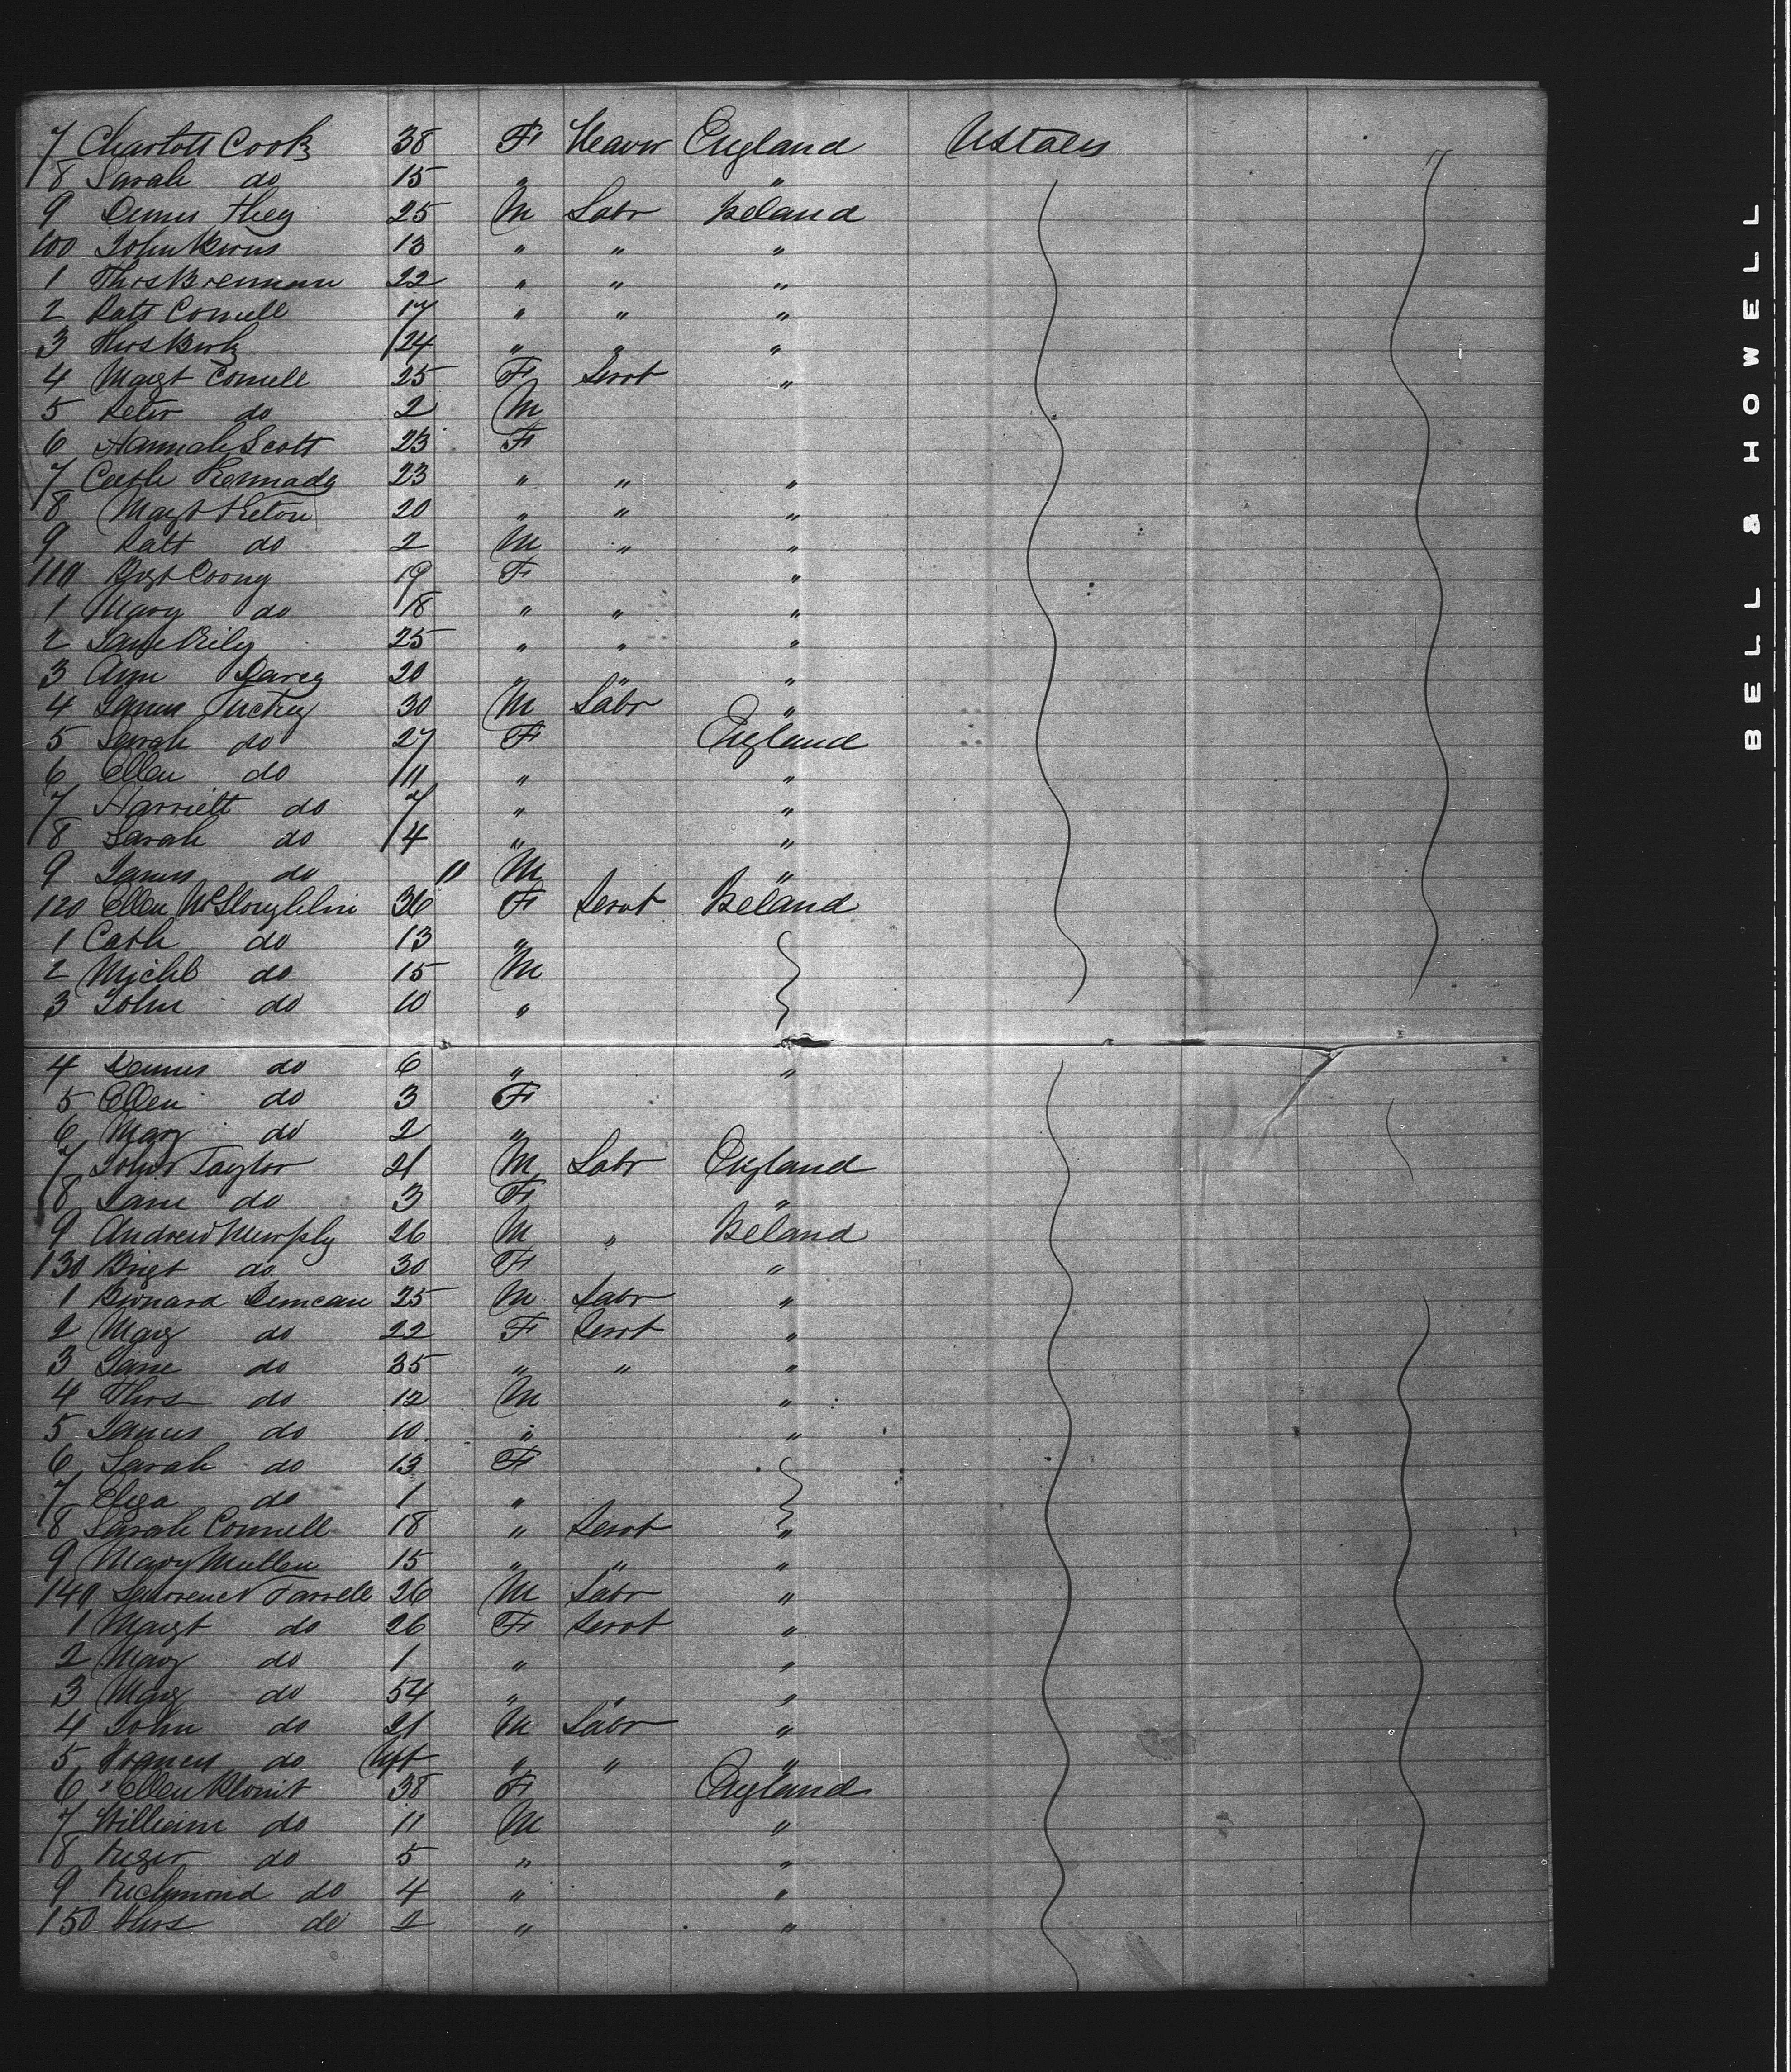 7 Charlott Cook 38 F Weaver England UStates
8 Sarah do 15 " "
9 25 M Labr Ireland
100 John 13 " " "
1 Thos Brennan 22 " " "
2 Patt Connell 17 " " "
3 Thos 24 " " "
4 Margt Connell 25 F Servt "
5 Peter do 2 M
6 Hannah Scott 23 F
7 Cath Kennady 23 " " "
8 Margt 20 " " "
9 Patt do 2 M " "
110 Brgt 19 F "
1 Mary do 18 " " "
2 Jane Rily 25 " " "
3 Ann Darcy 20 " " "
4 James 30 M Labr "
5 Sarah do 27 F England
6 Ellen do 11 " "
7 Harriett do 7 " "
8 Sarah do 4 " "
9 James do 11 M "
120 Ellen McLoughlin 36 F Servt Ireland
1 Cath do 13 "
2 Michl do 15 M
3 John do 10 "
4 Dennis do 6 " "
5 Ellen do 3 F
6 Mary do 2 "
7 John Taylor 21 M Labr England
8 Jane do 3 F "
9 Andrew Murphy 26 M " Ireland
130 Brigt do 30 F "
1 Bernard Duncan 25 M Labr "
2 Mary do 22 F Servt "
3 Jane do 35 " " "
4 Thos do 12 M "
5 James do 10 " "
6 Sarah do 13 F
7 Eliza do 1 "
8 Sarah Connell 18 " Servt "
9 Mary Mullen 15 " " "
140 Lawrence Farrell 26 M Labr "
1 Margt do 26 F Servt "
2 Mary do 1 " "
3 Mary do 54 " " "
4 John do 21 M Labr "
5 do " " "
6 Ellen 38 F England
7 William do 11 M "
8 do 5 " "
9 Richmond do 4 " "
150 Thos do 2 " "
BELL & HOWELL